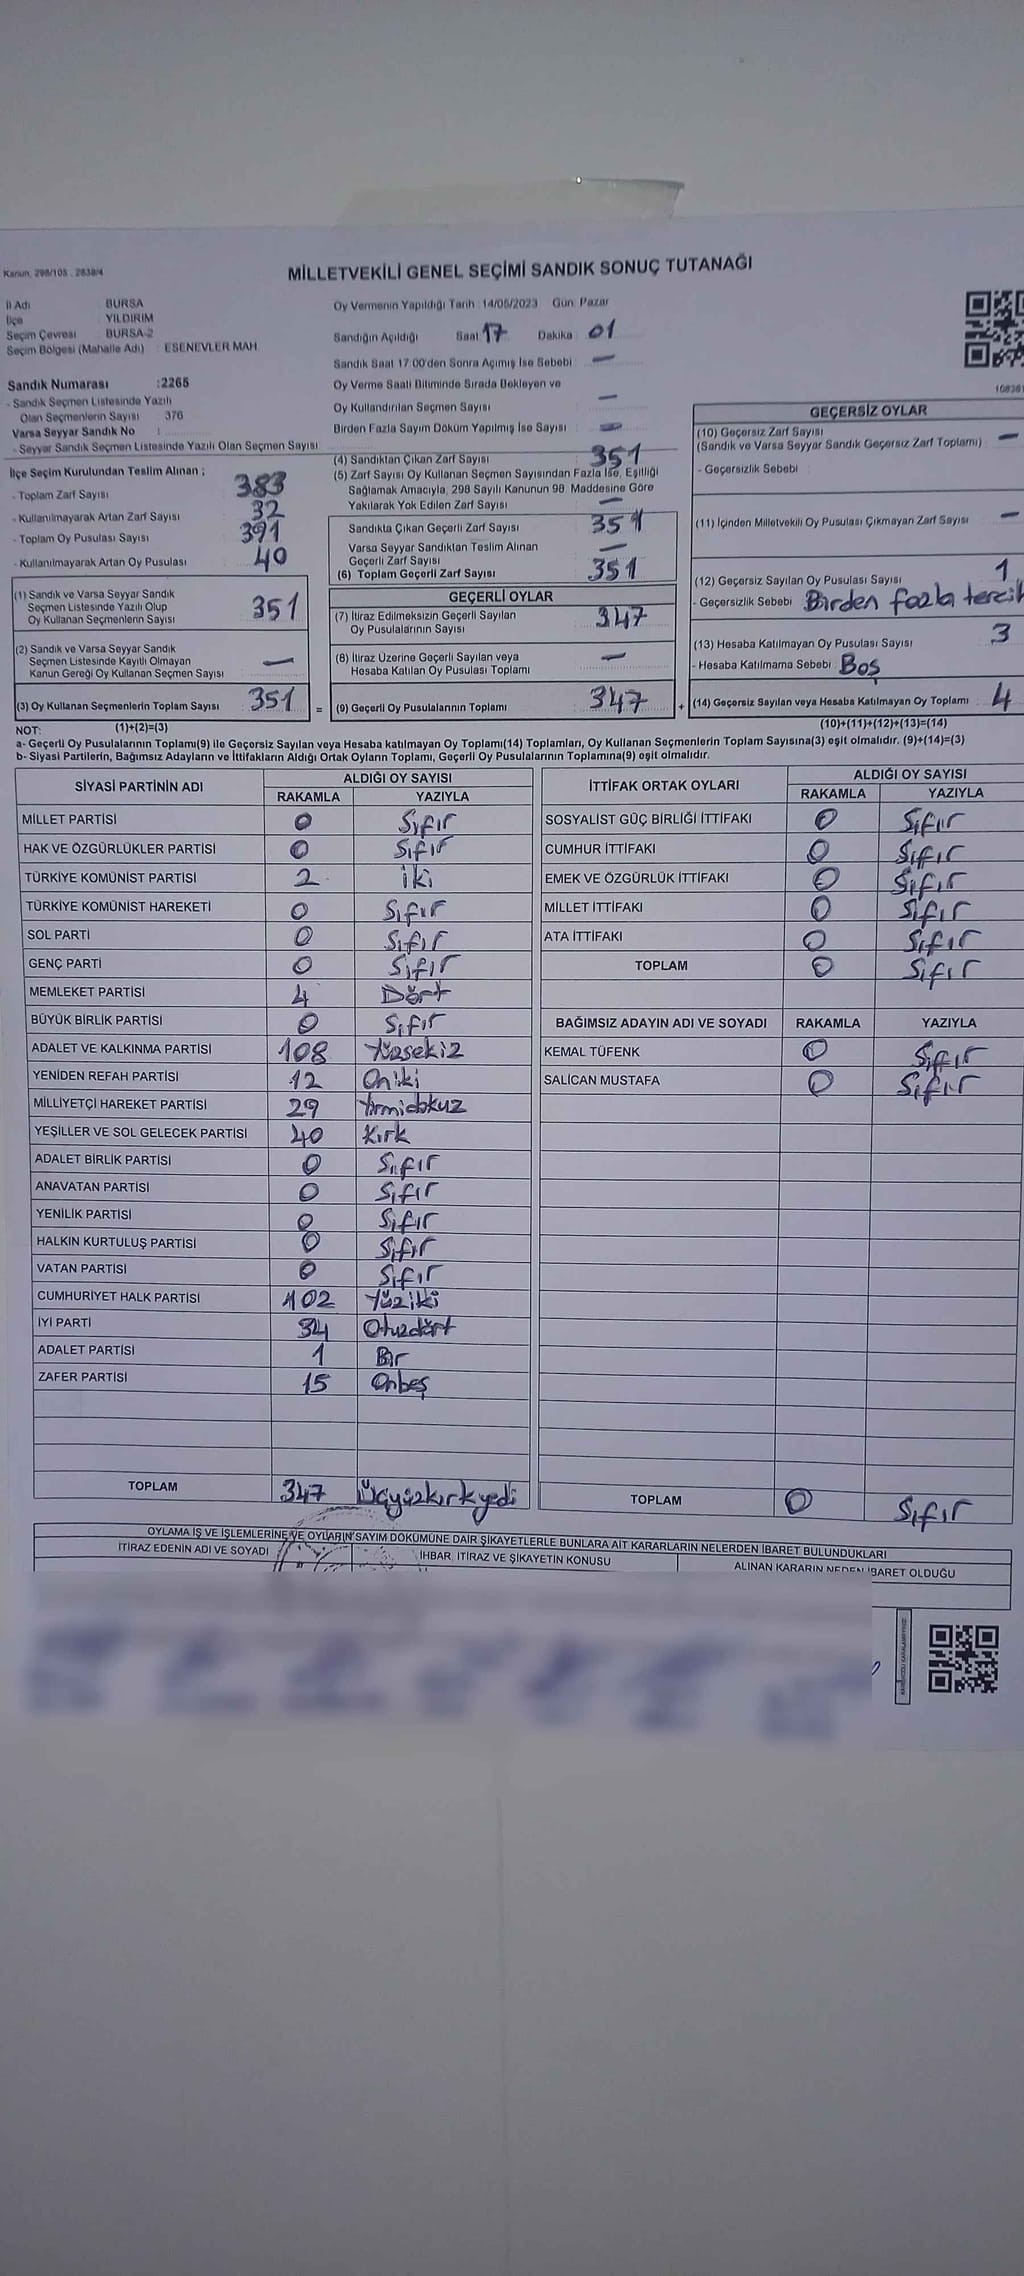 Kanun, 298/105 . 2839/4
MİLLETVEKİLİ GENEL SEÇİMİ SANDIK SONUÇ TUTANAĞI
İl Adı BURSA
İlçe YILDIRIM
Seçim Çevresi BURSA-2
Seçim Bölgesi (Mahalle Adı) : ESENEVLER MAH
Sandık Numarası :2265
- Sandık Seçmen Listesinde Yazılı
Olan Seçmenlerin Sayısı 376
Varsa Seyyar Sandık No :
- Seyyar Sandık Seçmen Listesinde Yazılı Olan Seçmen Sayısı
İlçe Seçim Kurulundan Teslim Alınan ;
- Toplam Zarf Sayısı 383
- Kullanılmayarak Artan Zarf Sayısı 32
- Toplam Oy Pusulası Sayısı 391
- Kullanılmayarak Artan Oy Pusulası 40
(1) Sandık ve Varsa Seyyar Sandık
Seçmen Listesinde Yazılı Olup
Oy Kullanan Seçmenlerin Sayısı 351
(2) Sandık ve Varsa Seyyar Sandık
Seçmen Listesinde Kayıtlı Olmayan
Kanun Gereği Oy Kullanan Seçmen Sayısı —
(3) Oy Kullanan Seçmenlerin Toplam Sayısı 351 =
Oy Vermenin Yapıldığı Tarih : 14/05/2023 Gün: Pazar
Sandığın Açıldığı Saat 17 Dakika : 01
Sandık Saat 17:00'den Sonra Açımış İse Sebebi : —
Oy Verme Saati Bitiminde Sırada Bekleyen ve
Oy Kullandırılan Seçmen Sayısı —
Birden Fazla Sayım Döküm Yapılmış İse Sayısı —
(4) Sandıktan Çıkan Zarf Sayısı 351
(5) Zarf Sayısı Oy Kullanan Seçmen Sayısından Fazla İse, Eşitliği
Sağlamak Amacıyla, 298 Sayılı Kanunun 98. Maddesine Göre
Yakılarak Yok Edilen Zarf Sayısı —
Sandıkta Çıkan Geçerli Zarf Sayısı 351
Varsa Seyyar Sandıktan Teslim Alınan
Geçerli Zarf Sayısı —
(6) Toplam Geçerli Zarf Sayısı 351
GEÇERLİ OYLAR
(7) İtiraz Edilmeksizin Geçerli Sayılan
Oy Pusulalarının Sayısı 347
(8) İtiraz Üzerine Geçerli Sayılan veya
Hesaba Katılan Oy Pusulası Toplamı —
(9) Geçerli Oy Pusulalarının Toplamı 347 +
GEÇERSİZ OYLAR
(10) Geçersiz Zarf Sayısı
(Sandık ve Varsa Seyyar Sandık Geçersiz Zarf Toplamı) —
- Geçersizlik Sebebi
(11) İçinden Milletvekili Oy Pusulası Çıkmayan Zarf Sayısı —
(12) Geçersiz Sayılan Oy Pusulası Sayısı 1
- Geçersizlik Sebebi Birden fazla tercih
(13) Hesaba Katılmayan Oy Pusulası Sayısı 3
- Hesaba Katılmama Sebebi : Boş
(14) Geçersiz Sayılan veya Hesaba Katılmayan Oy Toplamı 4
NOT: (1)+(2)=(3) (10)+(11)+(12)+(13)=(14)
a- Geçerli Oy Pusulalarının Toplamı(9) ile Geçersiz Sayılan veya Hesaba katılmayan Oy Toplamı(14) Toplamları, Oy Kullanan Seçmenlerin Toplam Sayısına(3) eşit olmalıdır. (9)+(14)=(3)
b- Siyasi Partilerin, Bağımsız Adayların ve İttifakların Aldığı Ortak Oyların Toplamı, Geçerli Oy Pusulalarının Toplamına(9) eşit olmalıdır.
SİYASİ PARTİNİN ADI ALDIĞI OY SAYISI
RAKAMLA YAZIYLA
MİLLET PARTİSİ 0 Sıfır
HAK VE ÖZGÜRLÜKLER PARTİSİ 0 Sıfır
TÜRKİYE KOMÜNİST PARTİSİ 2 iki
TÜRKİYE KOMÜNİST HAREKETİ 0 Sıfır
SOL PARTİ 0 Sıfır
GENÇ PARTİ 0 Sıfır
MEMLEKET PARTİSİ 4 Dört
BÜYÜK BİRLİK PARTİSİ 0 Sıfır
ADALET VE KALKINMA PARTİSİ 108 Yüzsekiz
YENİDEN REFAH PARTİSİ 12 Oniki
MİLLİYETÇİ HAREKET PARTİSİ 29 Yirmidokuz
YEŞİLLER VE SOL GELECEK PARTİSİ 40 Kırk
ADALET BİRLİK PARTİSİ 0 Sıfır
ANAVATAN PARTİSİ 0 Sıfır
YENİLİK PARTİSİ 0 Sıfır
HALKIN KURTULUŞ PARTİSİ 0 Sıfır
VATAN PARTİSİ 0 Sıfır
CUMHURİYET HALK PARTİSİ 102 Yüziki
İYİ PARTİ 34 Otuzdört
ADALET PARTİSİ 1 Bir
ZAFER PARTİSİ 15 Onbeş
TOPLAM 347 Üçyüzkırkyedi
İTTİFAK ORTAK OYLARI ALDIĞI OY SAYISI
RAKAMLA YAZIYLA
SOSYALİST GÜÇ BİRLİĞİ İTTİFAKI 0 Sıfır
CUMHUR İTTİFAKI 0 Sıfır
EMEK VE ÖZGÜRLÜK İTTİFAKI 0 Sıfır
MİLLET İTTİFAKI 0 Sıfır
ATA İTTİFAKI 0 Sıfır
TOPLAM 0 Sıfır
BAĞIMSIZ ADAYIN ADI VE SOYADI RAKAMLA YAZIYLA
KEMAL TÜFENK 0 Sıfır
SALİCAN MUSTAFA 0 Sıfır
TOPLAM 0 Sıfır
OYLAMA İŞ VE İŞLEMLERİNE VE OYLARIN SAYIM DÖKÜMÜNE DAİR ŞİKAYETLERLE BUNLARA AİT KARARLARIN NELERDEN İBARET BULUNDUKLARI
İTİRAZ EDENİN ADI VE SOYADI İHBAR, İTİRAZ VE ŞİKAYETİN KONUSU ALINAN KARARIN NEDEN İBARET OLDUĞU